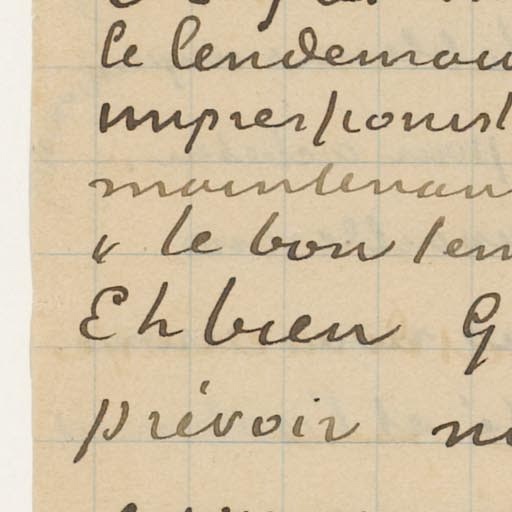 le lendemain
impressionist
maintenan
" le bon ten
Eh bien G
prévoir